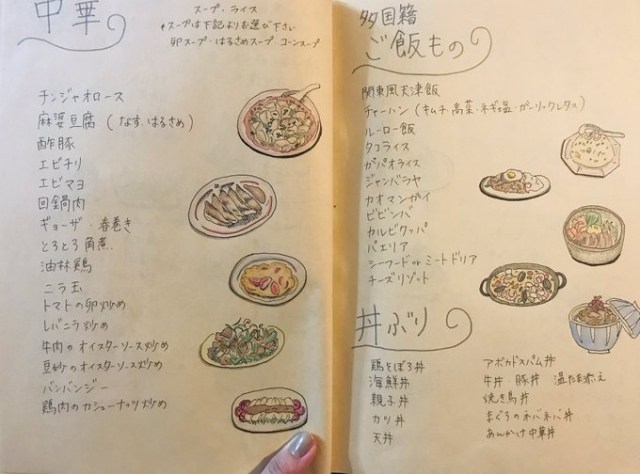 中華
スープ・ライス
*スープは下記よりお選び下さい
卵スープ・はるさめスープ コーンスープ
チンジャオロース
麻婆豆腐 (なす・はるさめ)
酢豚
エビチリ
エビマヨ
回鍋肉
ギョーザ・春巻き
とろとろ角煮
油林鶏
ニラ玉
トマトの卵炒め
レバニラ炒め
牛肉のオイスターソース炒め
豆妙のオイスターソース炒め
バンバンジー
鶏肉のカシューナッツ炒め
多国籍
ご飯もの
関東風天津飯
チャーハン (キムチ・高菜・ネギ塩・ガーリックレタス)
ルーロー飯
タコライス
ガパオライス
ジャンバラヤ
カオマンガイ
ビビンバ
カルビクッパ
パエリア
シーフードorミートドリア
チーズリゾット
丼ぶり
鶏そぼろ丼
海鮮丼
親子丼
カツ丼
天丼
アボカドスパム丼
牛丼・豚丼 温たま添え
焼き鳥丼
まぐろのネバネバ丼
あんかけ中華丼